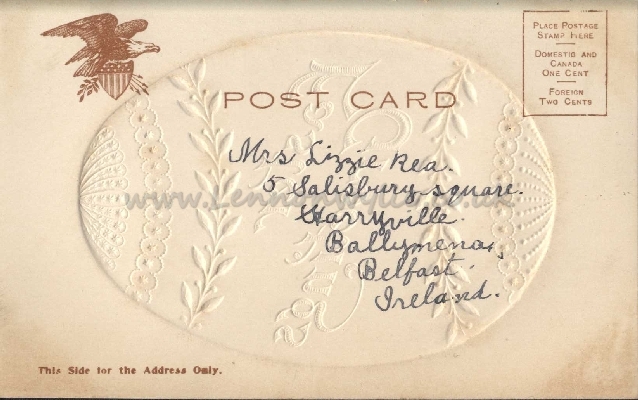 PLACE POSTAGE
STAMP HERE
DOMESTIC AND
CANADA
ONE CENT
FOREIGN
TWO CENTS
POST CARD
Mrs Lizzie Rea.
5 Salisbury square.
Harryville.
Ballymena,
Belfast.
Ireland.
This Side for the Address Only.